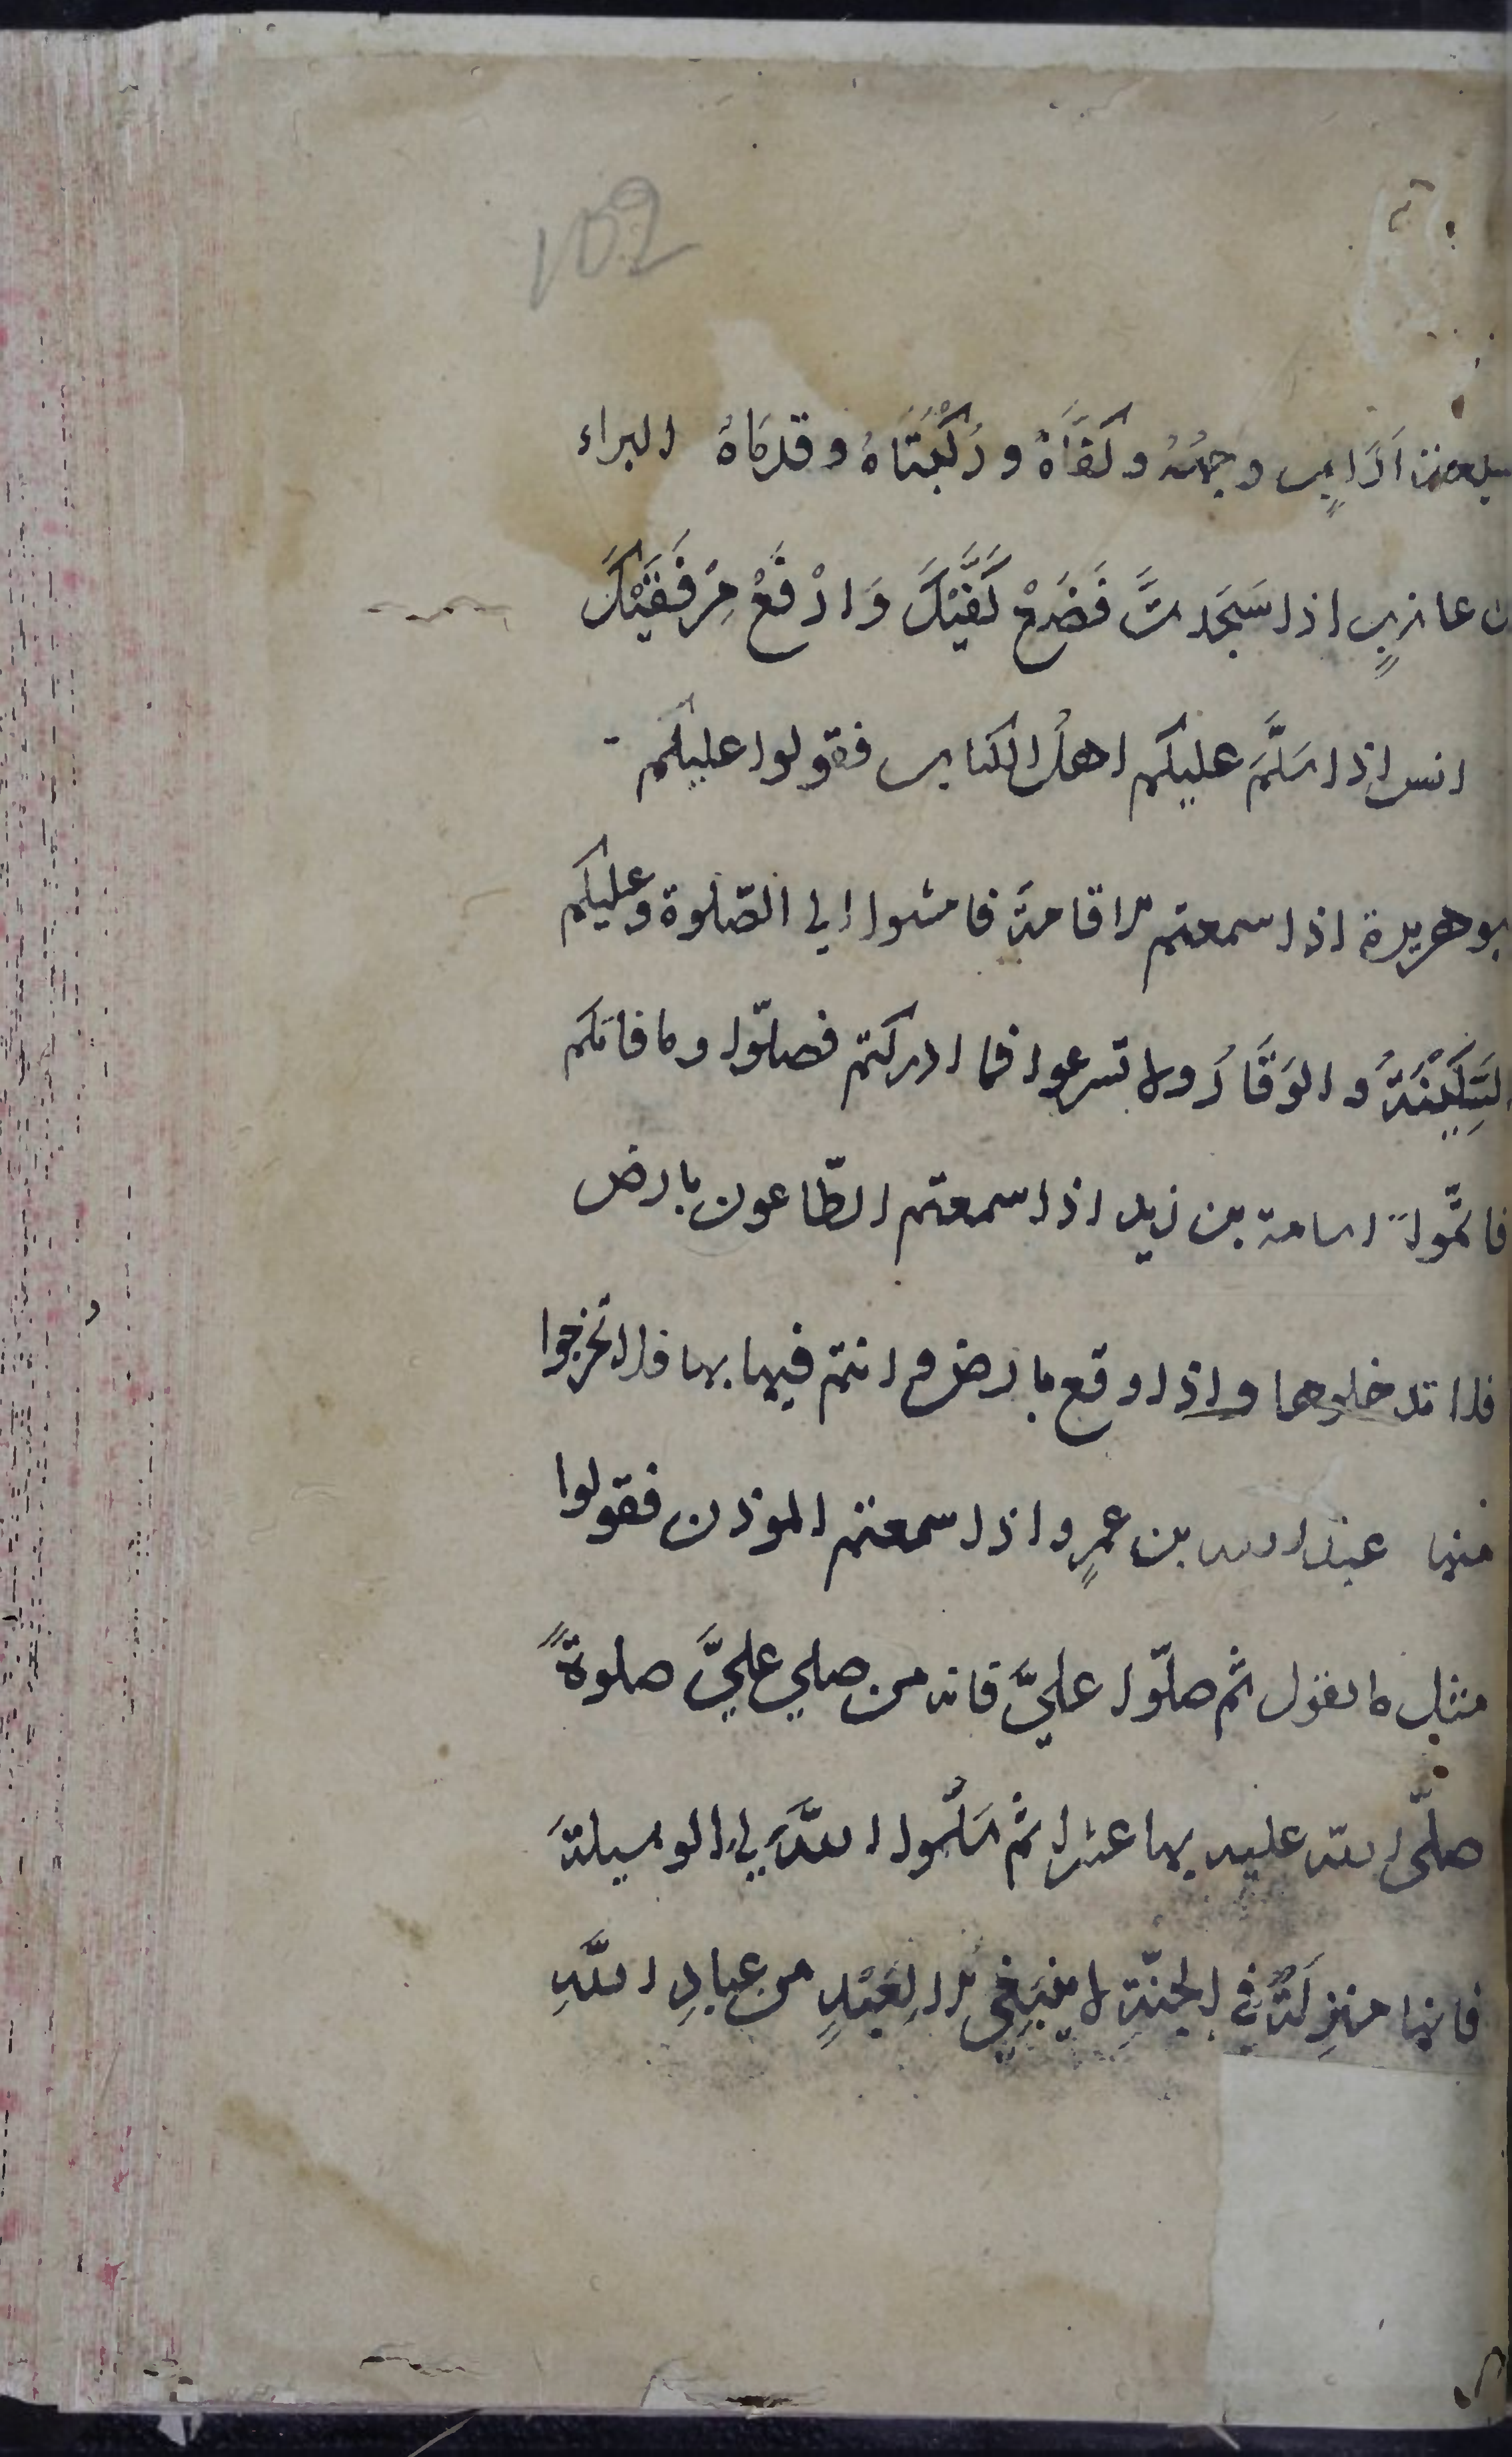 102
سبعة اَرَابٍ وجهُهُ وكفَّاهُ ورُكْبَتَاهُ وقدمَاهُ البراء
بن عازبٍ اذا سَجَدتَّ فَضَعْ كَفَّيْكَ وَارْفَعْ مِرْفَقَيْكَ
انس اذا سَلَّمَ عليكم اهلُ الكتاب فقولوا عليكم
بوهريرة اذا سمعتم الاقامةَ فامشوا الى الصّلوة وعليكم
السَّكِيْنَةُ والوَقَارُ ولا تسرعوا فما ادركتم فصلّوا وما فاتكم
فاتمّوا اسامة بن زيد اذا سمعتم الطّاعون بارض
فلا تدخلوها واذا وقع بارض وانتم فيها بها فلا تخرجوا
منها عبد الله بن عمرٍو اذا سمعتم الموذن فقولوا
مثل ما يقول ثم صلّوا عليَّ فانه من صلي عليَّ صلوةً
صلّى الله عليه بها عشرا ثم سَلُوا اللَّهَ لي الوسيلةَ
فانها منزِلَةٌ في الجنّةِ لا ينبَغِي الا لِعَبْدٍ من عبادِ اللَّهِ